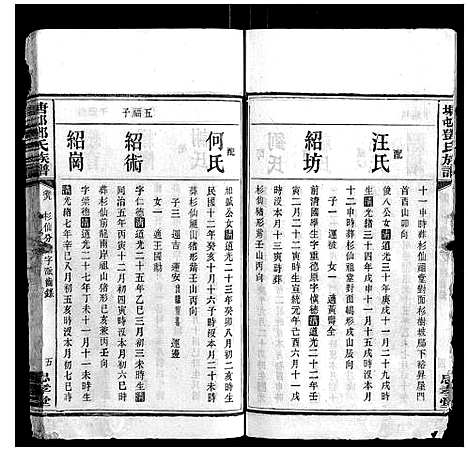 塘邨鄧氏族譜
十一申時葬杉仙祖堂對面杉樹坡屬下裕昇屋門
首酉山卯向
配
汪氏
俊八公女清道光三十年庚戌十一月二十九戌時
生清光緒三十四年戊申十一月十五戌時沒本月
十二申時葬杉仙祖堂對面獅形戌山辰向
子一 運被 女一 適黃響全
紹坊
前清國學生字重德原字積德清道光二十二年壬
寅二月二十二寅時生宣統元年己酉六月十一寅
時沒本月十三寅時葬
配
何氏
如斌公女清道光二十三年癸卯八月初二亥時生
民國十二年癸亥十月十六子時沒本月二十未時
葬杉仙象形背壬山丙向
子三 運吉 運安 運邊
五福子
紹術
女一 適王國勳
字仁德清道光二十五年乙巳三月初六戌時生清
同治五年丙寅十二月初四寅時沒本月初六巳時
葬杉仙前龍南岸祖山豬形巳亥兼丙壬向
紹崗
字崇德清道光二十七年丁未十一月十一未時生
清光緒七年辛巳八月初五亥時沒本月初七巳時
塘邨鄧氏族譜
杉仙分 字派齒錄
五
忠孝堂